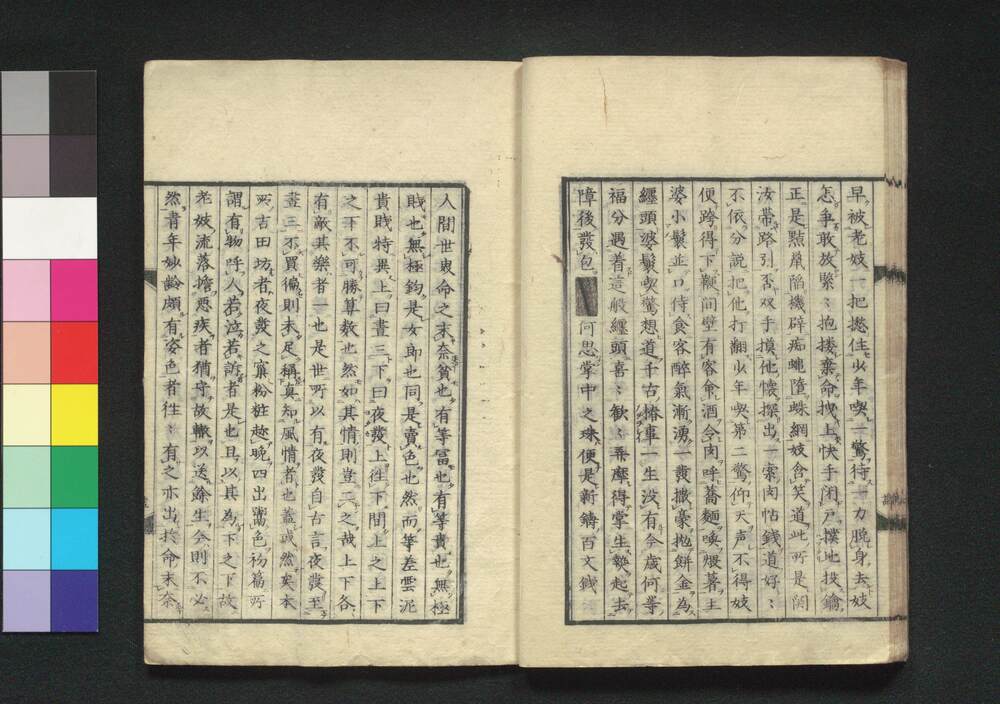 早被老妓一把撚住少年喫一驚待一力脱身去妓
怎爭敢放緊〻抱摟棄命拽上快手閉戸撲地投鑰
正是㸃鼠陷機碎痴蠅墮蛛網妓含笑道此所是関
汝帯路引否双手摸他懐探出一索肉怗錢道好〻
不依分説把他打翻少年喫第二驚仰天声不得妓
便跨得下鞭間壁有客命酒令肉呼蕎麺喚煖著主
婆小鬟並口侍食客醉氣漸湧一發撒豪抛餅金為
纏頭婆鬟喫驚想道千古椿事一生没有今歳何等
福分遇着這般纏頭喜〻歓〻弄摩得掌生熱起去
障後發包 何思掌中之珠便是新鑄百文錢
人間世衷命之末奈貧也有等冨也有等貴也無極
賎也無極鈞是女郎也同是賣色也然而等差雲泥
貴賎特異上曰晝三下曰夜發上徃下間上之上下
之下不可勝算数也然如其情則豈二之哉上下各
有敵其樂者一也是世所以有夜發自古言夜發至
晝三不買徧則未足稱真知風情者也蓋或然矣本
所古田坊者夜發之窠粉粧趂晩四出鬻色礿篇所
謂有物呼人若泣若訴者是也且以其為下之下故
老妓流落擔惡疾者猶守故轍以送餘生今則不必
然青年妙齢頗有姿色者徃〻有之亦出於命末奈